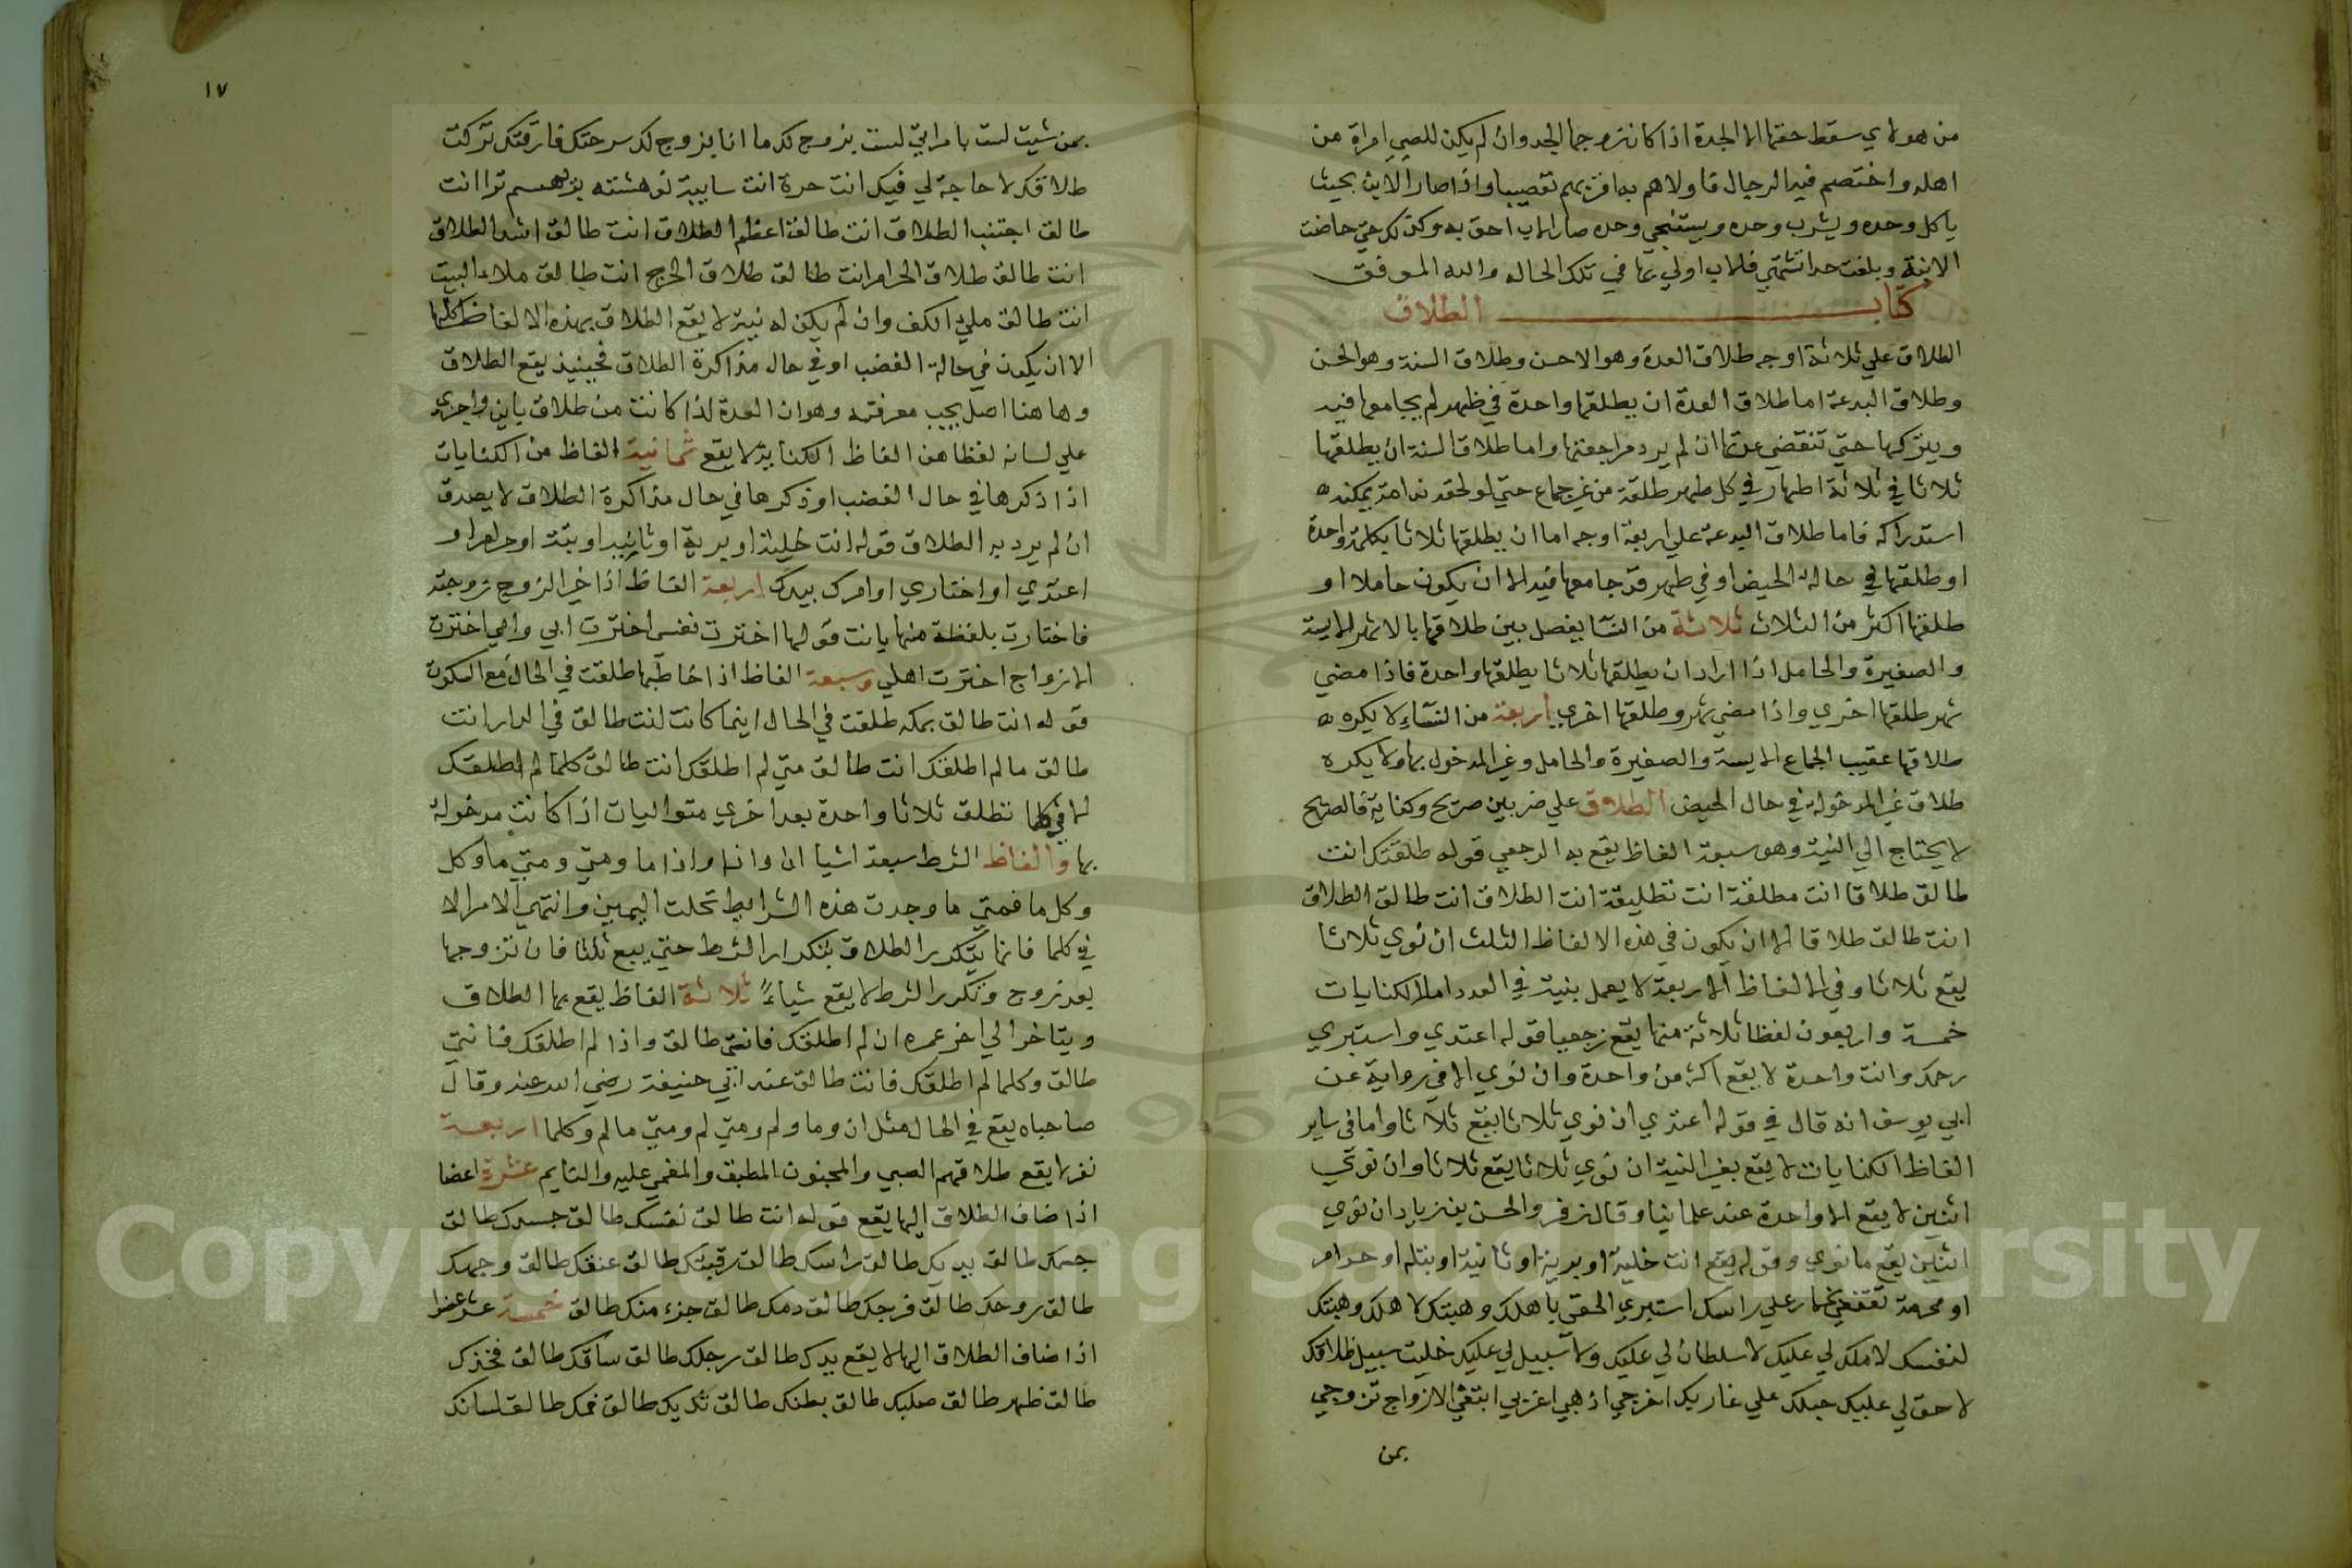 من هولاي سقط حقها الا الجدة اذا كان زوجها الجد وان لم يكن للصبي امراة من
اهله واختصم فيه الرجال فاولاهم به اقربهم تعصيبا واذا صار الابن بحيث
ياكل وحده ويشرب وحده ويستنجي وحده صار الاب احق به وكذلك متي حاضت
الابنة وبلغت حدا تشتهي فلاب اولي بها في تلك الحاله والله الموفق
كتاب الطلاق
الطلاق علي ثلاثة اوجه طلاق العدة وهو الاحسن وطلاق السنة وهو الحسن
وطلاق البدعة اما طلاق العدة ان يطلقها واحدة في طهر لم يجامعها فيه
ويتركها حتي تنقضي عدتها ان لم يرد مراجعتها واما طلاق السنة ان يطلقها
ثلاثا في ثلاثة اطهار في كل طهر طلقة من غير جماع حتي لو لحقه ندامة يمكنه
استدراكه فاما طلاق البدعة علي اربعة اوجه اما ان يطلقها ثلاثا بكلمة واحدة
او طلقها في حالة الحيض او في طهر قد جامعها فيه الا ان يكون حاملا او
طلقها اكثر من الثلاث ثلاثة من النسا يفصل بين طلاقها بالاشهر الايسة
والصغيرة والحامل اذا اراد ان يطلقها ثلاثا يطلقها واحدة فاذا مضي
شهر طلقها اخري واذا مضي شهر وطلقها اخري اربعة من النساء لا يكره
طلاقها عقيب الجماع الايسة والصغيرة والحامل وغير المدخول بها ولا يكره
طلاق غير المدخولة في حال الحيض الطلاق علي ضربين صريح وكناية فالصريح
لا يحتاج الي النية وهو سبعة الفاظ يقع به الرجعي قوله طلقتك انت
طالق طلاقا انت مطلقة انت تطليقة انت الطلاق انت طالق الطلاق
انت طالق طلاقا الا ان يكون في هذه الالفاظ الثلث ان نوي ثلاثا
يقع ثلاثا وفي الالفاظ الاربعة لا يعمل بنية في العدد اما الكنايات
خمسة واربعون لفظا ثلاثة منها يقع رجعيا قوله اعتدي واستبري
رحمك وانت واحدة لا يقع اكثر من واحدة وان نوي الا في رواية عن
ابي يوسف انه قال في قوله اعتدي ان نوي ثلاثا يقع ثلاثا واما في ساير
الفاظ الكنايات لا يقع بغير النية ان نوي ثلاثا يقع ثلاثا وان نوي
اثنين لا يقع الا واحدة عند علماينا وقال زفر والحسن بن زياد ان نوي
اثنين يقع ما نوي وقوله يقع انت خلية او برية او او بتلة او حرام
او محرمة تقنعي بخمار علي راسك استبري الحقي باهلك وهبتك لاهلك وهبتك
لنفسك لا ملك لي عليك لا سلطان لي عليك ولا سبيل لي عليك خليت سبيل طلاقك
لا حق لي عليك حبلك علي غاربك اخرجي اذهبي اغربي ابتغي الازواج تزوجي
بمن
١٧
بمن شيت لست بامراتي لست بزوج لك ما انا بزوج لك سرحتك فارقتك تركت
طلاقك لا حاجة لي فيك انت حرة انت سايبة انت
طالق اجتنب الطلاق انت طالق اعظم الطلاق انت طالق اشد الطلاق
انت طالق طلاق الحرام انت طالق طلاق الحرج انت طالق ملاء البيت
انت طالق ملئ الكف وان لم يكن له نية لا يقع الطلاق بهذه الالفاظ كلها
الا ان يكون في حالة الغضب او في حال مذاكرة الطلاق فحينيذ يقع الطلاق
وهاهنا اصل يجب معرفته وهو ان العدة اذا كانت من طلاق باين واجري
علي لسانه لفظا من الفاظ الكناية لا يقع ثمانية الفاظ من الكنايات
اذا ذكرها في حال الغضب او ذكرها في حال مذاكرة الطلاق لا يصدق
ان لم يرد به الطلاق قوله انت خلية او برية او او بتة او حرام او
اعتدي او اختاري او امرك بيدك اربعة الفاظ اذا خير الزوج زوجته
فاختارت بلفظة منها بانت قولها اخترت نفسي اخترت ابي وامي اخترت
الازواج اخترت اهلي وسبعة الفاظ اذا خاطبها طلقت في الحال مع السكوت
قوله انت طالق بمكه طلقت في الحال اينما كانت انت طالق في الدار انت
طالق ما لم اطلقك انت طالق متي لم اطلقك انت طالق كلما لم اطلقك
الا في كلما تطلق ثلاثا واحدة بعد اخري متواليات اذا كانت مدخولة
بها والفاظ الشرط سبعة اشيا ان واذا واذا ما ومتي ومتي ما وكل
وكل ما فمتي ما وجدت هذه الشرايط تحلت اليمين وانتهي الامر الا
في كلما فانها يتكرر الطلاق بتكرار الشرط حتي يقع ثلثا فان تزوجها
بعد زوج وتكرر الشرط لا يقع شياء ثلاثة الفاظ يقع بها الطلاق
ويتاخر الي اخر عمره ان لم اطلقك فانتي طالق واذا لم اطلقك فانتي
طالق وكلما لم اطلقك فانت طالق عند ابي حنيفة رضي الله عنه وقال
صاحباه يقع في الحال مثل ان وما ولم ومتي لم ومتي ما لم وكلما اربعة
نفر لا يقع طلاقهم الصبي والمجنون المطبق والمغمي عليه والنايم عشرة اعضا
اذا ضاف الطلاق اليها يقع قوله انت طالق نفسك طالق جسدك طالق
جسمك طالق بدنك طالق راسك طالق رقبتك طالق عنقك طالق وجهك
طالق روحك طالق فرجك طالق دمك طالق جزء منك طالق خمسة عشر عضوا
اذا ضاف الطلاق اليها لا يقع يدك طالق رجلك طالق ساقك طالق فخذك
طالق ظهر طالق صلبك طالق بطنك طالق ثديك طالق فمك طالق لسانك
Copyright © King Saud University
1957